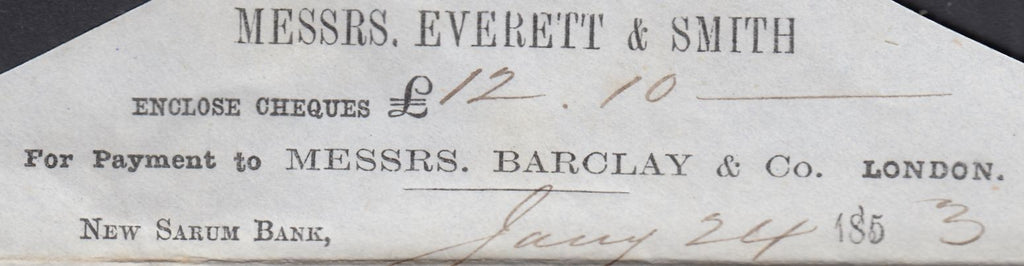 MESSRS. EVERETT & SMITH
ENCLOSE CHEQUES £12.10
For Payment to MESSRS. BARCLAY & Co. LONDON.
NEW SARUM BANK, Jany 24 1853